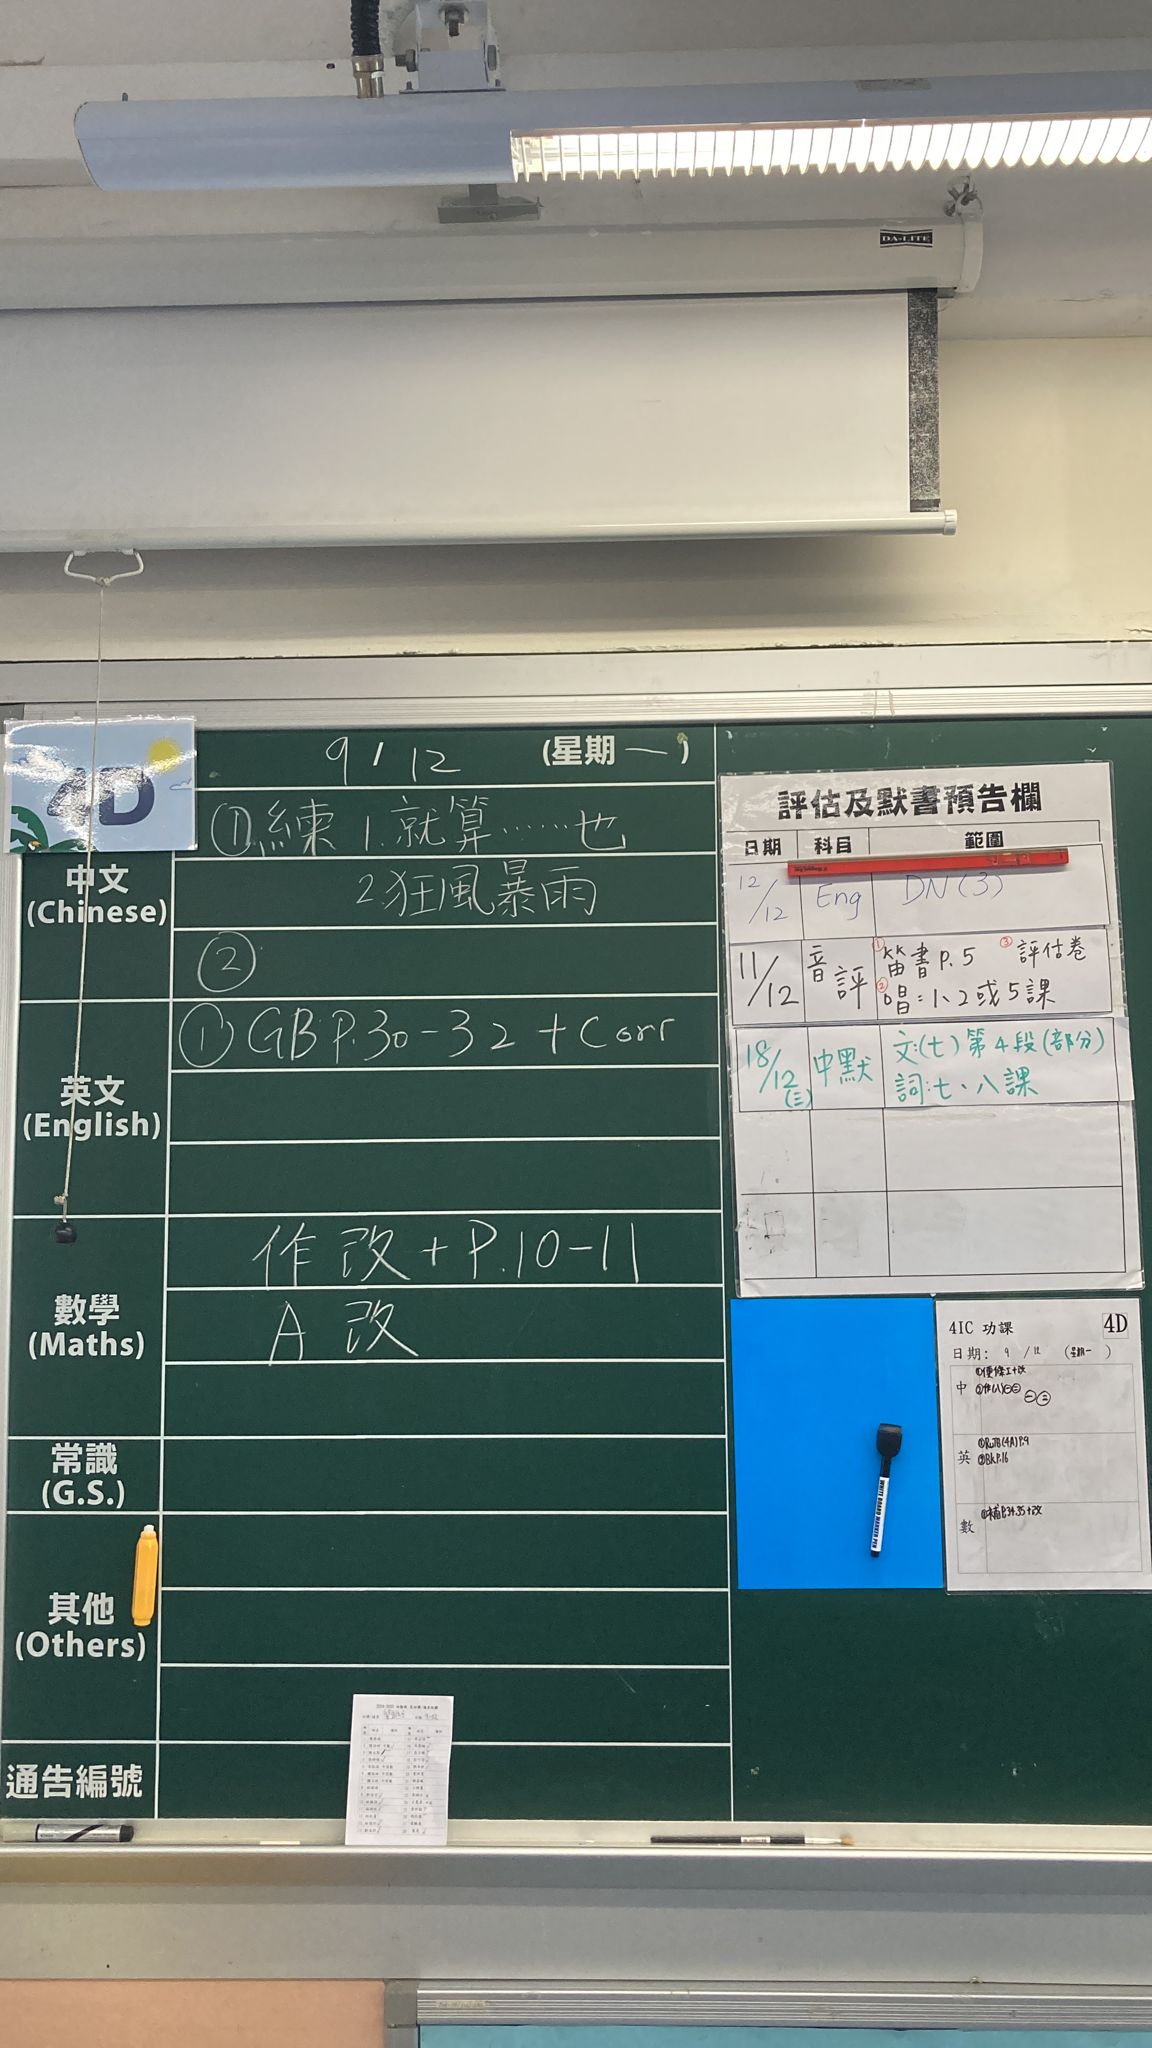 DA-LITE
4D
9 / 12 (星期一)
中文
(Chinese)
①練 1.就算……也
2.狂風暴雨
②
英文
(English)
① GB P.30-32 + Corr
數學
(Maths)
作改 + P.10-11
A 改
常識
(G.S.)
其他
(Others)
通告編號
評估及默書預告欄
日期 科目 範圍
12/12 Eng DN(3)
11/12 音評 ①笛書P.5 ③評估卷
②唱:1、2或5課
18/12(三) 中默 文:(七)第4段(部分)
詞:七、八課
WHITE BOARD MARKER PEN
4IC 功課 4D
日期: 9 / 12 (星期一)
中
①便條工+改
英
②BK P.16
數
①補P.34.35+改